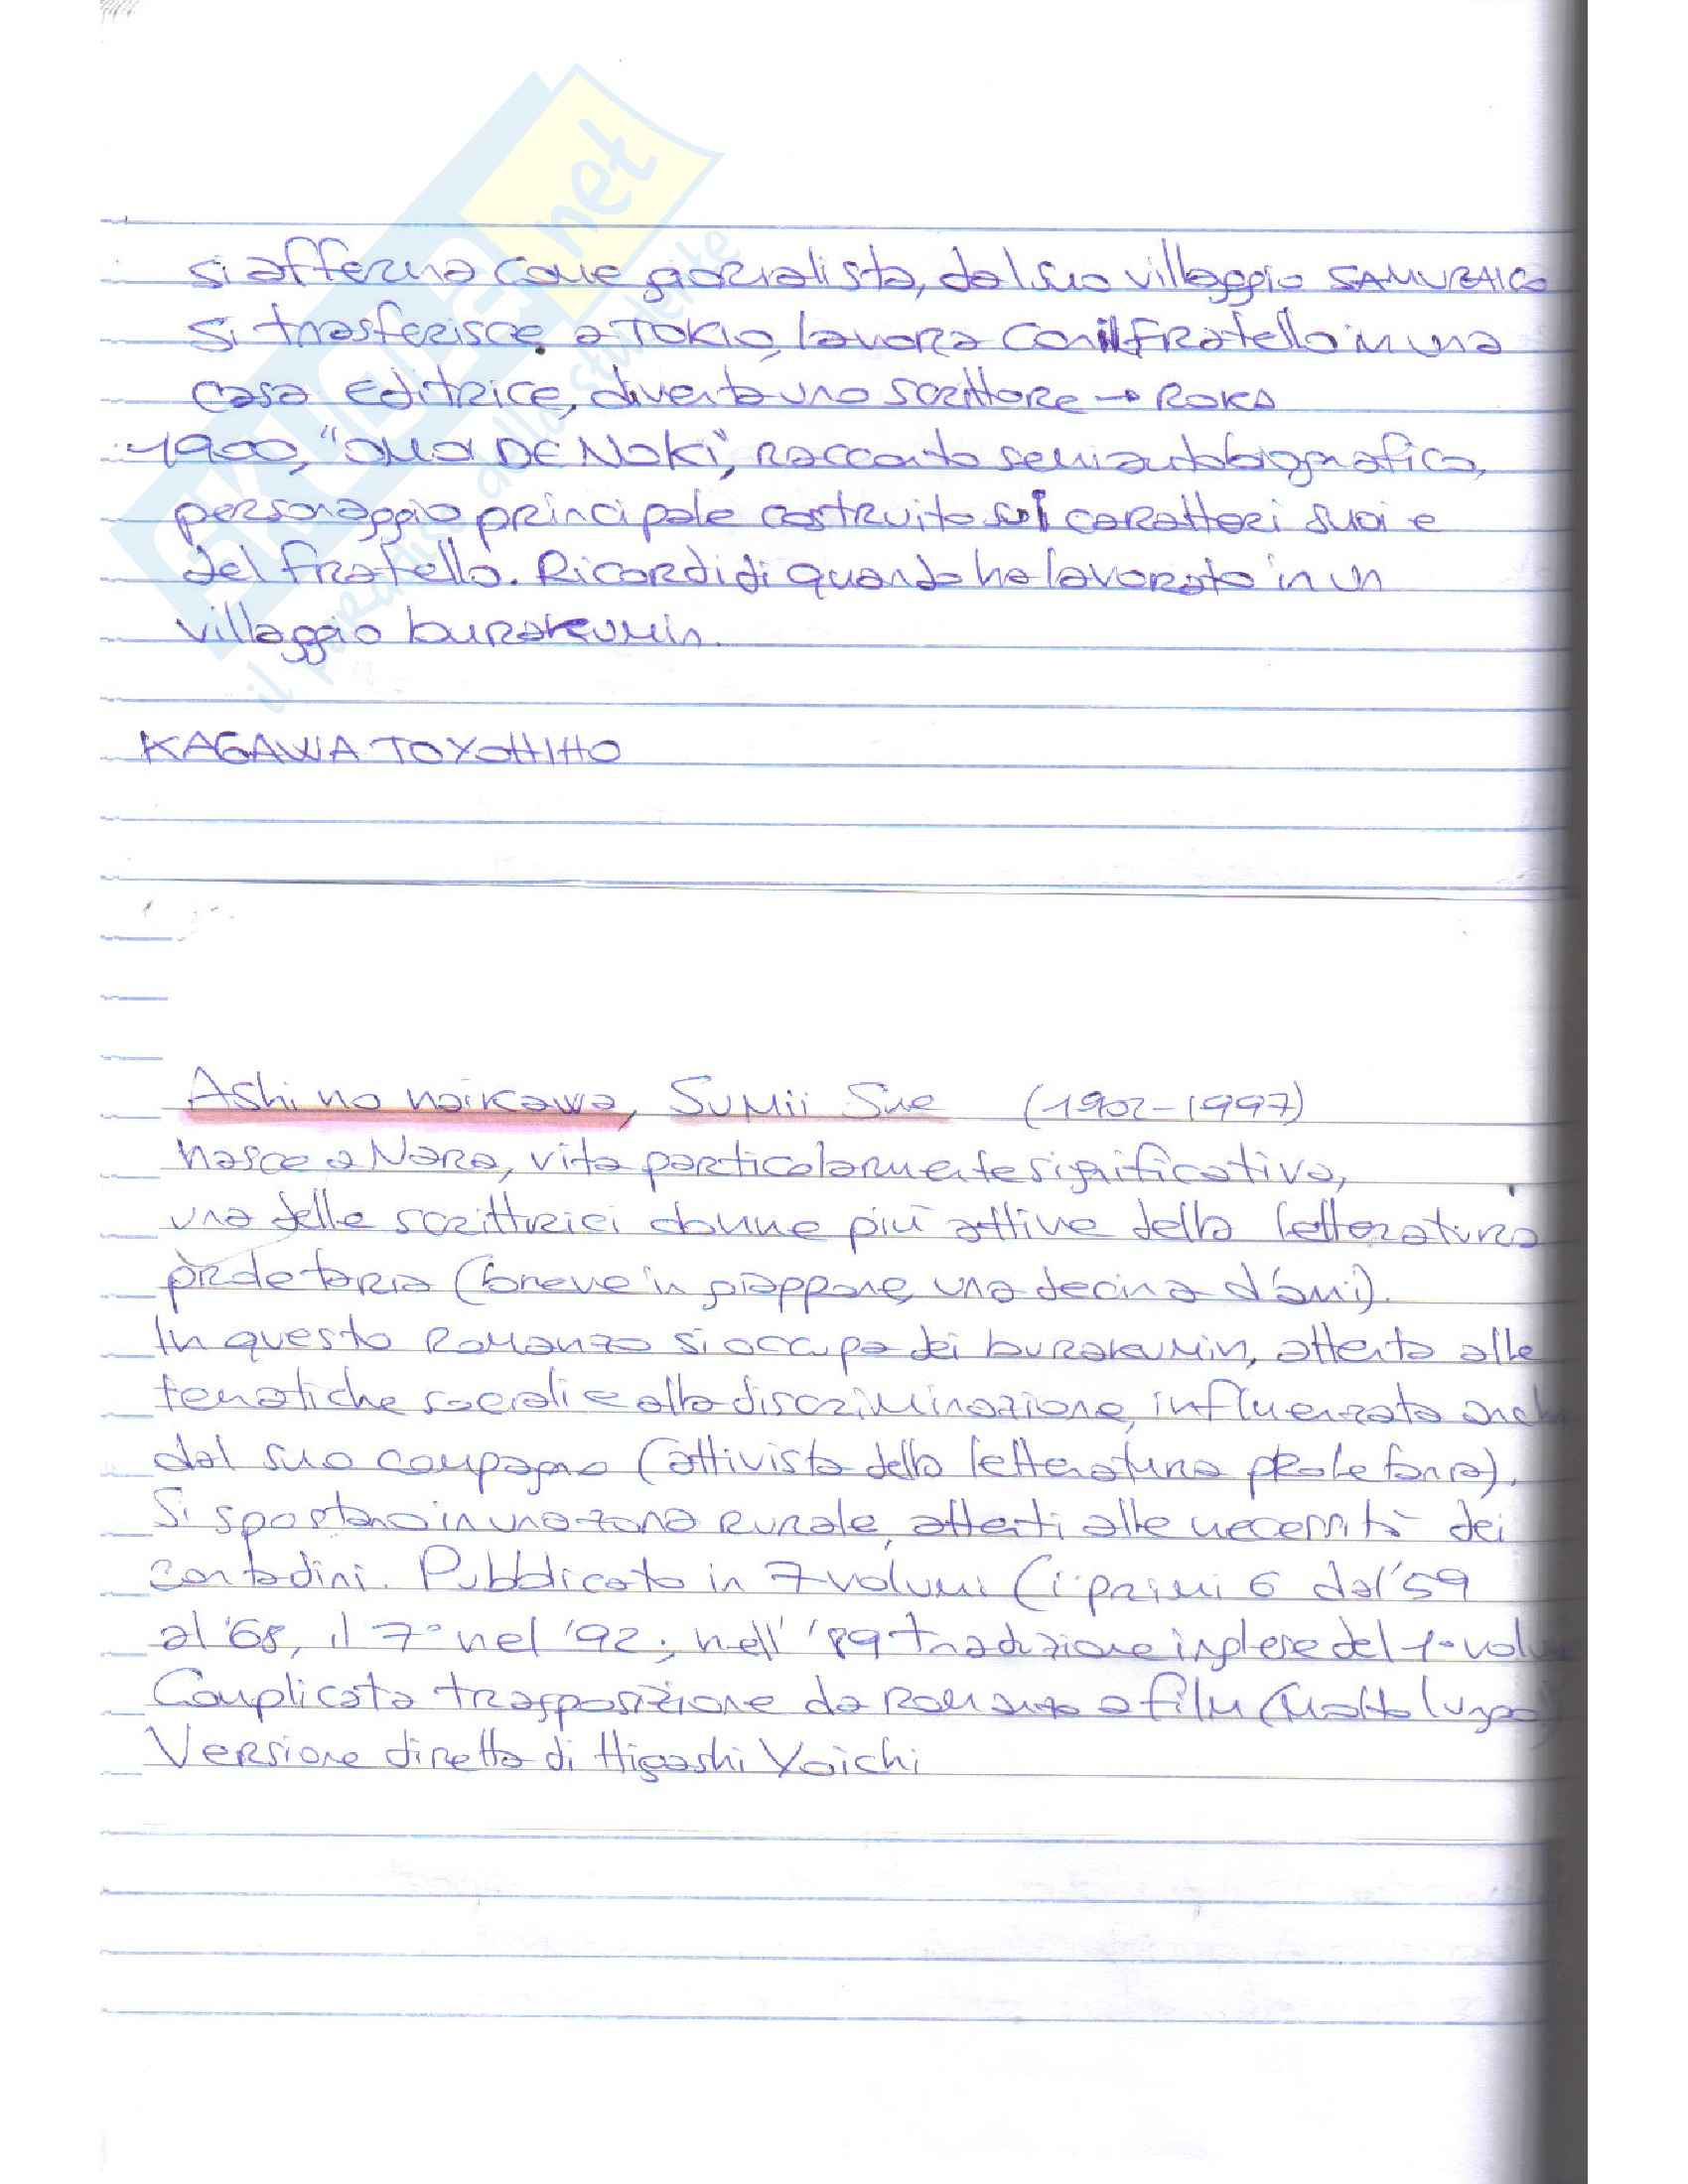 si afferma come giornalista, dal suo villaggio SAMURAICO
si trasferisce a TOKIO, lavora con il fratello in una
casa editrice, diventa uno scrittore → ROKA
1900, "OMOI DE NO KI", racconto semiautobiografico,
personaggio principale costruito sui caratteri suoi e
del fratello. Ricordi di quando ha lavorato in un
villaggio burakumin.
KAGAWA TOYOHIHO
Ashi no naikawa, Sumii Sue (1902-1997)
nasce a Nara, vita particolarmente significativa,
una delle scrittrici donne più attive della letteratura
proletaria (breve in giappone, una decina d'anni).
In questo romanzo si occupa dei burakumin, attenta alle
tematiche sociali e alla discriminazione, influenzata anche
dal suo compagno (attivista della letteratura proletaria).
Si spostano in una zona rurale, attenti alle necessità dei
contadini. Pubblicato in 7 volumi (i primi 6 dal '59
al '68, il 7° nel '92; nell' '89 traduzione inglese del 1° volume
Complicata trasposizione da romanzo a film (molto lungo)
Versione diretta di Higashi Yoichi
SKUOLA.net
il paradiso dello studente